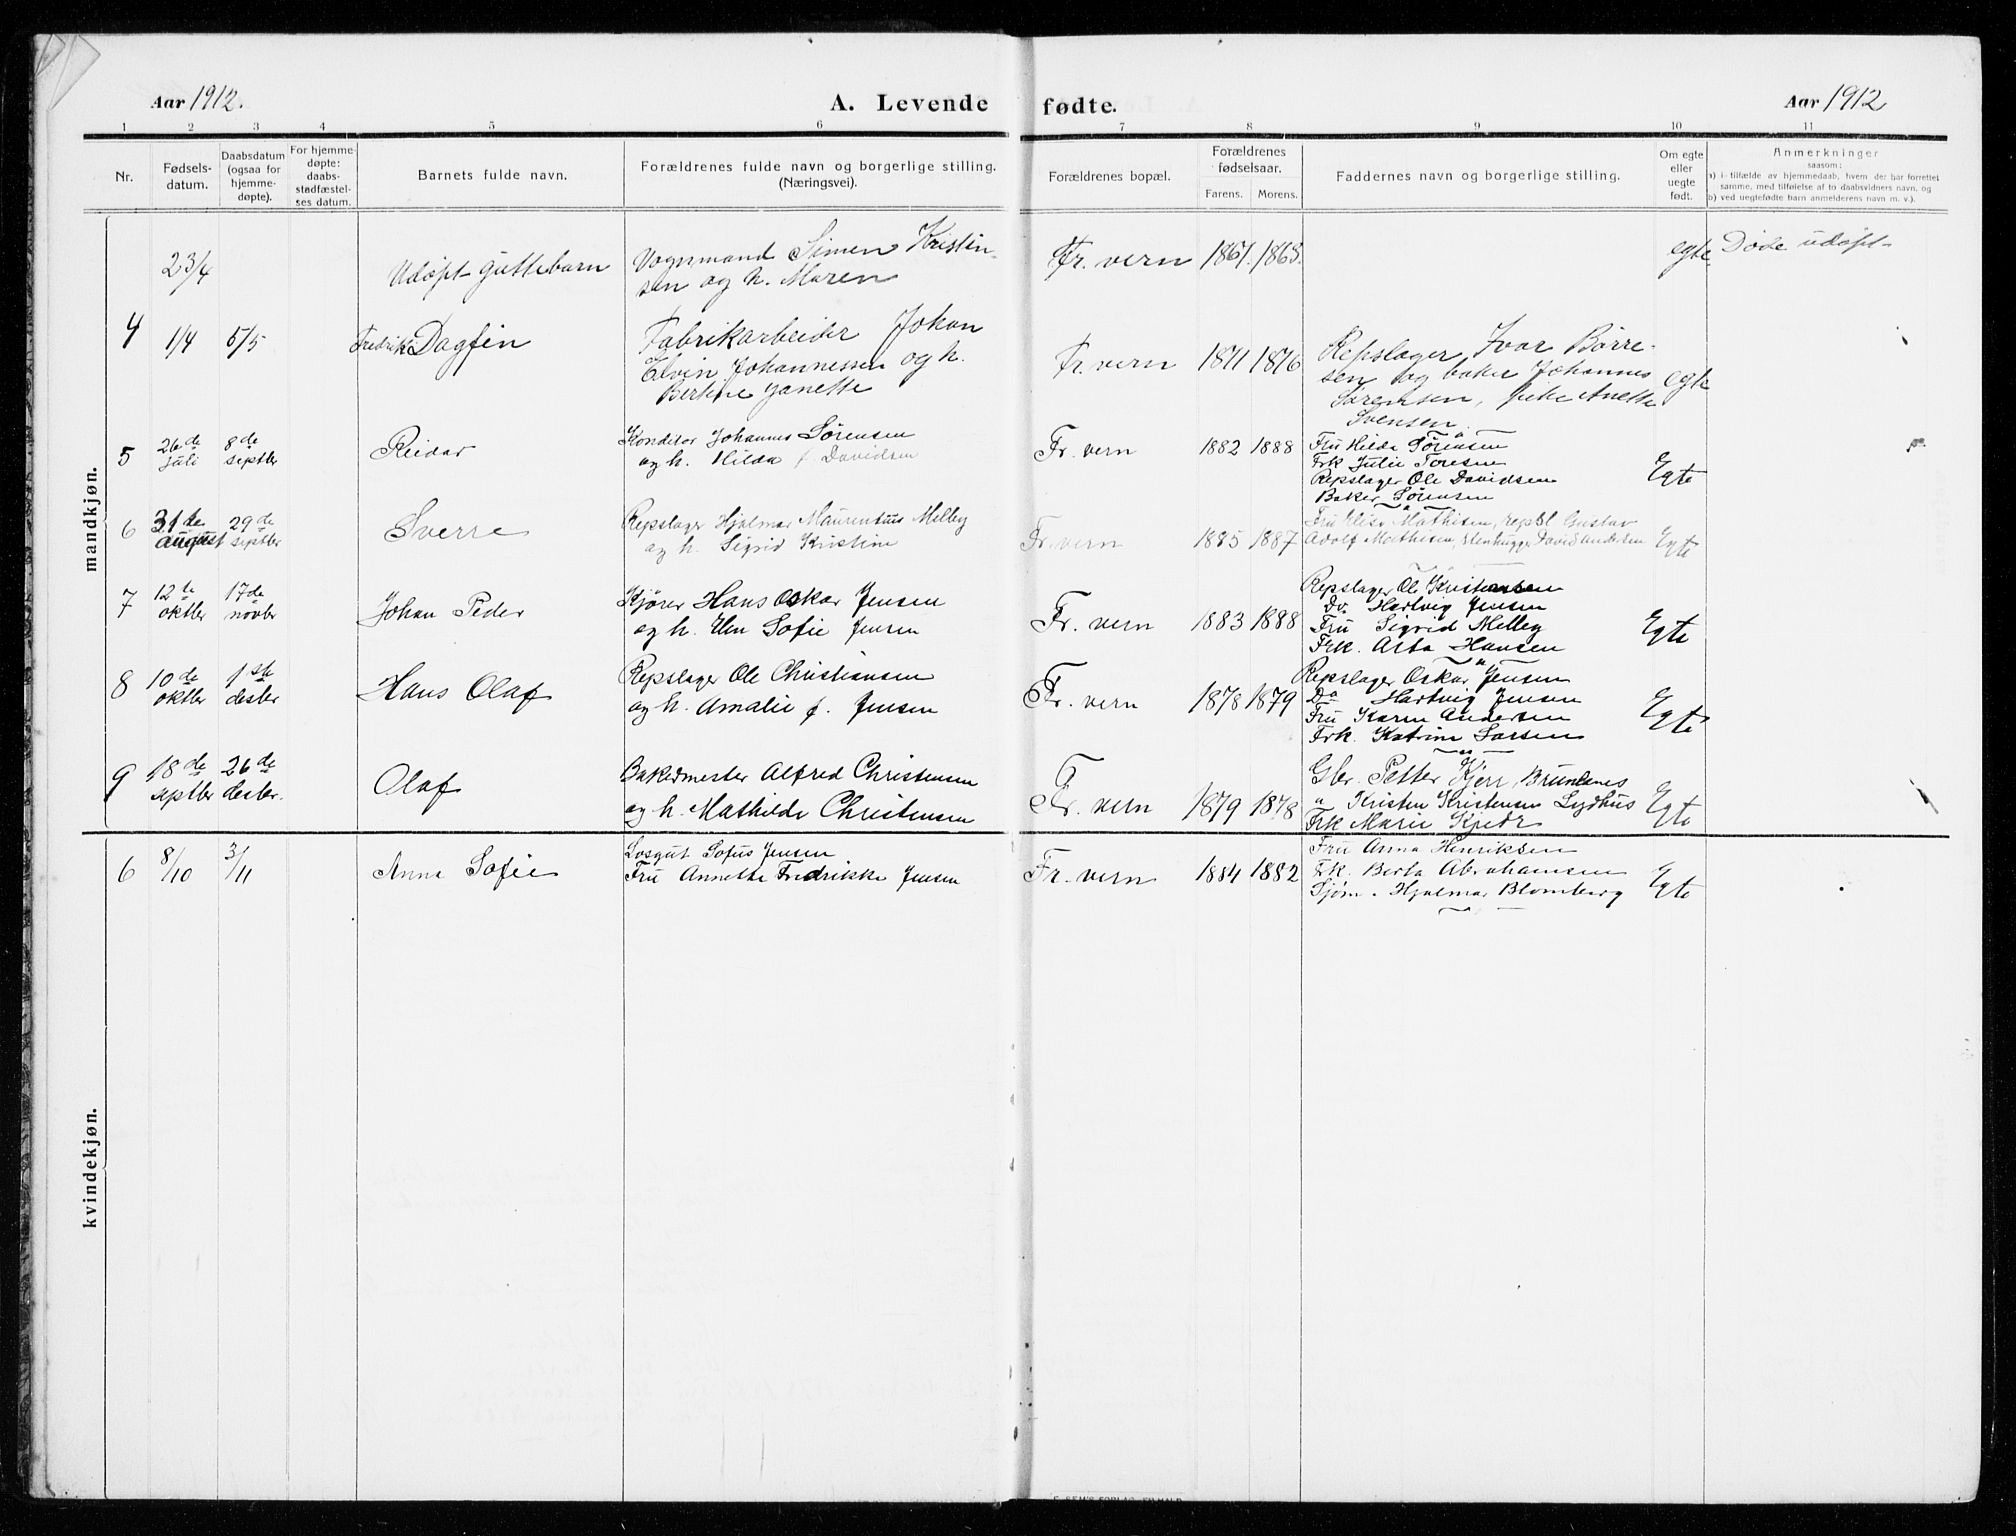 Aar 1912. A. Levende fødte. Aar 1912
1 2 3 4 5 6 7 8 9 10 11
Nr. Fødsels-datum. Daabsdatum (ogsaa for hjemme-døpte). For hjemme-døpte: daabs-stadfæstel-ses datum. Barnets fulde navn. Forældrenes fulde navn og borgerlige stilling. (Næringsvei). Forældrenes bopæl. Forældrenes fødselsaar. Farens. Morens. Faddernes navn og borgerlige stilling. Om egte eller uegte født. Anmerkninger saasom: a) i tilfælde av hjemmedaab, hvem der har forrettet samme, med tilføielse af to daabsvidners navn, og b) ved uegtefødte barn anmelderens navn m. v.).
mandkjøn.
23/4 Udøpt guttebarn Vognmand Simen Kristin-
sen og h. Maren
Fr. vern 1861. 1863. egte Døde udøpt
4 1/4 5/5 Fredrik Dagfin Fabrikarbeider Johan
Elvin Johannessen og h.
Bertine Janette
Fr. vern 1871 1876 Repslager Ivar Børre-
sen og baker Johannes
Sørensen, pike Anette
Svensen
egte
5 26de juli 8de septbr Reidar Konditor Johannes Sørensen
og h. Hilda f. Davidsen
Fr. vern 1882 1888 Fru Hilda Sørensen
Frk Julie Toresen
Repslager Ole Davidsen
Baker Sørensen
Egte
6 31te august 29de septbr Sverre Repslager Hjalmar Maurentius Melby
og h. Sigrid Kristine
Fr. vern 1885 1887 Fru Elise Mathisen, repsl Gustav
Adolf Mathisen, stenhugger David andersen
Egte
7 12te oktbr 17de novbr Johan Peder Kjører Hans Oskar Jensen
og h. Elen Sofie Jensen
Fr. vern 1883 1888 Repslager Ole Kristensen
Do. Hartvig Jensen
Fru Sigrid Melby
Frk. Asta Hansen
Egte
8 10de oktbr 1ste desbr Hans Olaf Repslager Ole Christiansen
og h. Amalie f. Jensen
Fr. vern 1878 1879 Repslager Oskar Jensen
Do Hartvig Jensen
Fru Karen Andersen
Frk. Katrine Larsen
Egte
9 18de septbr 26de desbr. Olaf Bakermester Alfred Christensen
og h. Mathilde Christensen
Fr. vern 1879 1878 Gbr. Petter Kjerr, Brunlanes
" Kristen Kristensen Sydhus
Frk Marie Kjerr
Egte
kvindekjøn.
6 8/10 3/11 Anna Sofie Losgut Sofus Jensen
Fru Annette Fredrikke Jensen
Fr. vern 1884 1882 Fru Anna Henriksen
Frk. Berta Abrahamsen
Sjøm. Hjalmar Blomberg
Egte